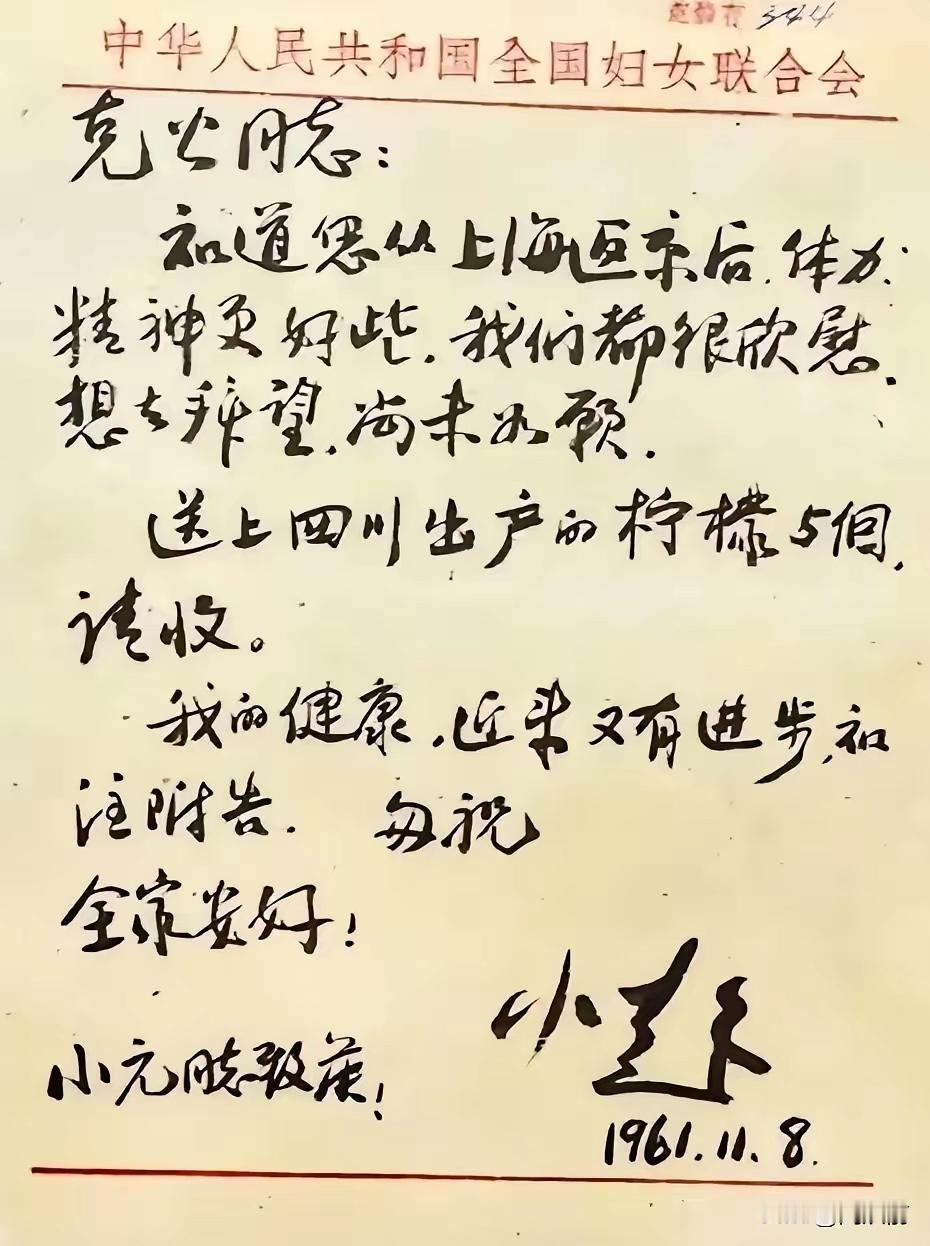 中华人民共和国全国妇女联合会
克公同志：
知道您从上海返京后，体力、
精神更好些，我们都很欣慰，
想去拜望，尚未如愿．
送上四川出产的柠檬5個，
请收。
我的健康，近来又有进步，知
注附告．匆祝
全家安好！
小超
小元同志致候！
1961.11.8.